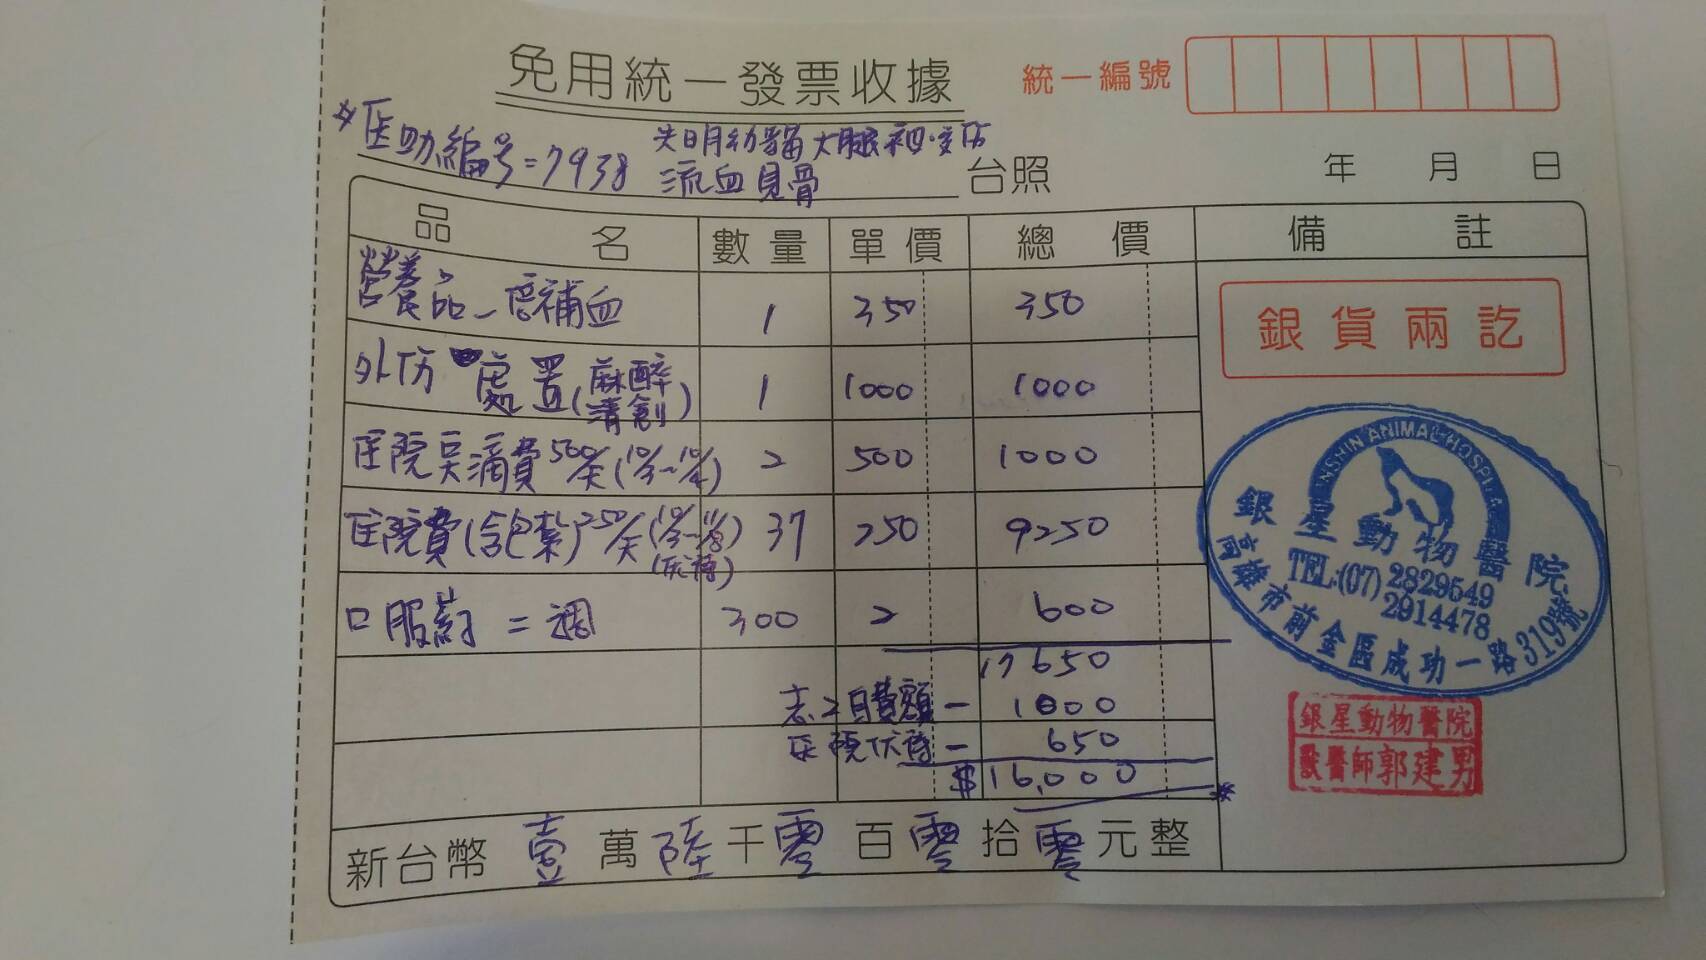 免用統一發票收據
統一編號
*医助編号=7938
失明幼貓大腿裡.
流血見骨
台照
年 月 日
品名 數量 單價 總價 備註
營養品- 補血 1 350 350
外傷 處置(麻醉清創) 1 1000 1000
住院点滴費500/天(10/3~10/4) 2 500 1000
住院費(含包紮)250/天 37 250 9250
口服葯=週 300 2 600
17650
志工自費額- 1000
医院优待- 650
$16,000
新台幣壹萬陸千零百零拾零元整
銀貨兩訖
NSHIN ANIMAL HOSPITAL
銀星動物醫院
TEL:(07)2829549
2914478
高雄市前金區成功一路319號
銀星動物醫院
獸醫師郭建男